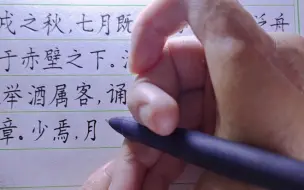 戌之秋,七月既
泛舟
于赤壁之下。
举酒属客,诵
章。少焉,月